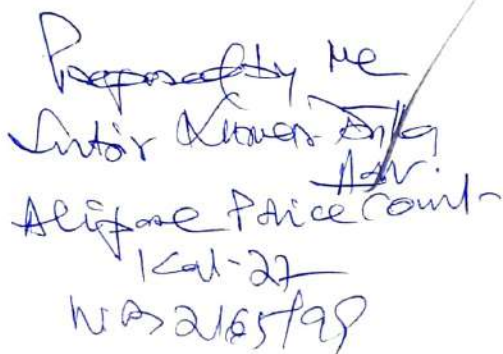 Prepared by me
Kumar
Adv.
Alipore Police Court
Kol-27
WB 2165/99